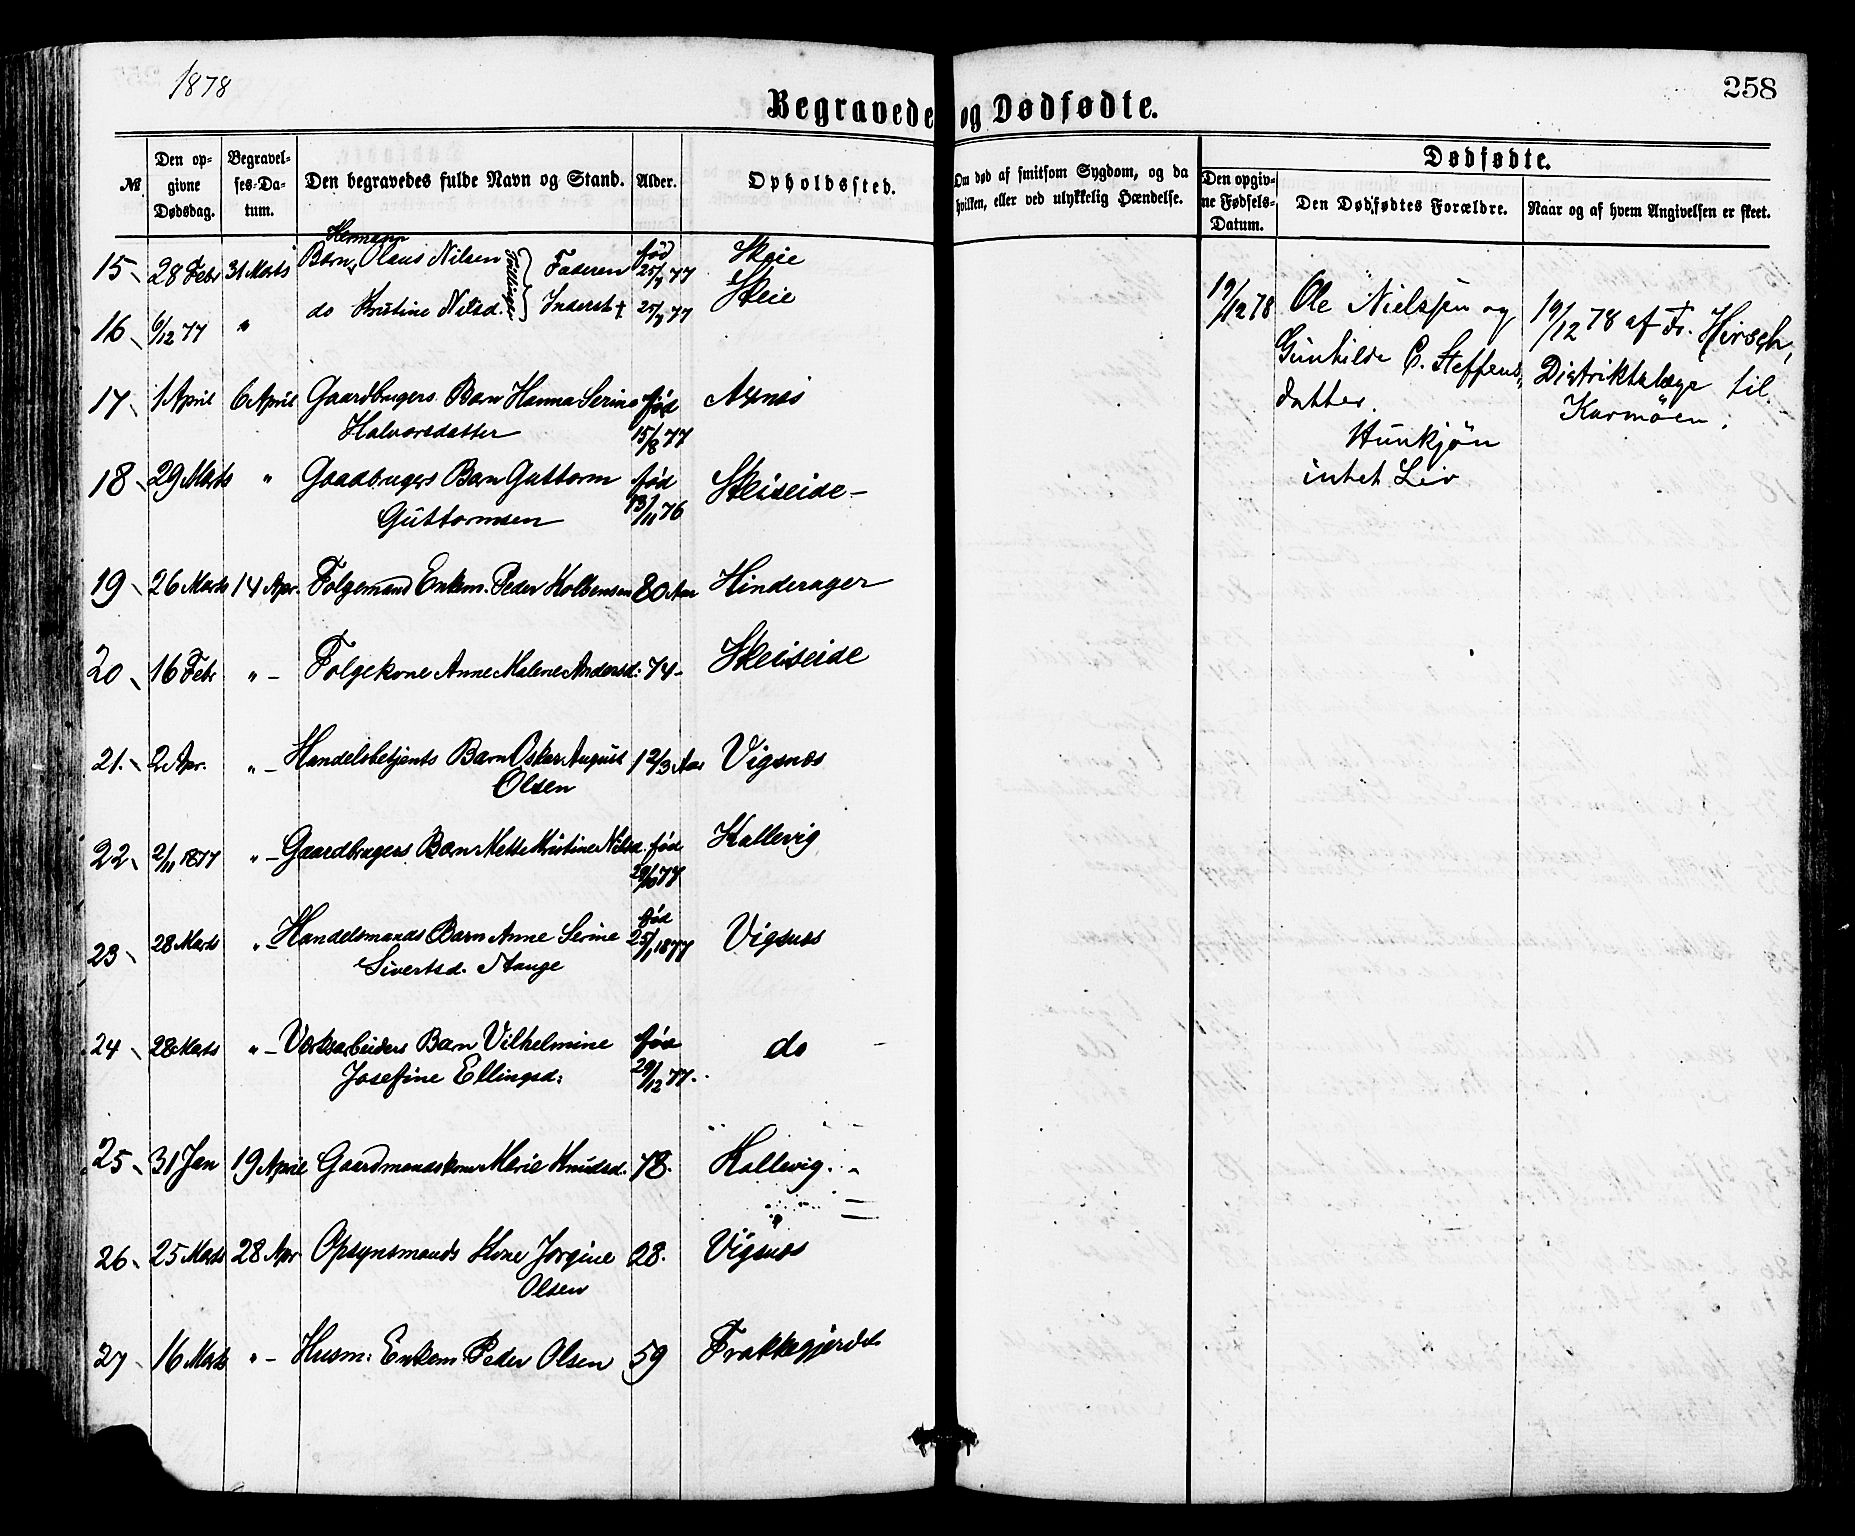 1878
258
Begravede og Dødfødte.
№
Den opgivne Dødsdag.
Begravelses-Datum.
Den begravedes fulde Navn og Stand.
Alder.
Opholdssted.
Om død af smitsom Sygdom, og da hvilken, eller ved ulykkelig Hændelse.
Dødfødte.
Den opgivne Fødsels-Datum.
Den Dødfødtes Forældre.
Naar og af hvem Angivelsen er skeet.
Hermann
15 28 Febr 31 Marts Barn Olaus Nilsen Tvillinger Faderen Inderst født 25/7 77 Skeie
16 6/12 77 " do Kristine Nilsd. 25/7 77 Skeie
17 1 April 6 April Gaardbrugers Barn Hanna Serine fød Axnæs
Halvorsdatter 15/8 77
18 29 Marts " Gaardbrugers Barn Guttorm fød Skeiseide
Guttormsen 13/11 76
19 26 Marts 14 Apr. Folgemand Enkem. Peder Kolbensen 80 Aar Hinderager
20 16 Febr " Folgekone Anne Malene Andersd: 74 Skeiseide
21. 2 Apr. " Handelsbetjents Barn Oskar August 1 2/3 Aar Vigsnæs
Olsen
22 2/11 1877 " Gaardbrugers Barn Mette Kristine Nilsd. fød Kallevig
29/10 77
23 28 Marts " Handelsmands Barn Anne Serine fød 25/1 1877 Vigsnæs
Sivertsd. Stange
24 28 Marts " Værksarbeiders Barn Vilhelmine fød do
Josefine Ellingsd: 29/12 77.
25 31 Jan 19 April Gaardmandskone Marie Knudsd. 78. Kallevig.
26 25 Marts 28 Apr Opsynsmands Kone Jorgine 28. Vigsnæs
Olsen
27 16 Marts " Husm: Enkem. Peder Olsen 59 Frakkagjerdet
19/12 78 Ole Nielssen og
Gunhilde C. Steffens
datter.
Hunkjøn
intet Liv
19/12 78 af Fr. Hirsch,
Distriktslæge til
Karmøen.